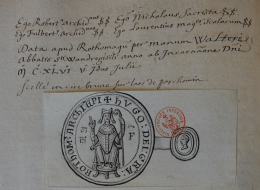 Ego Robert' Archid'nus §§ Ego Nicholaus Sacrista §§
Ego Fulbert' Archid'nus §§ Ego Laurentius magist' scolarum §§
Data apud Rothomagu per manum Walteri
Abbatis Sti Wandregisili anno ab Incarnatione Dni
M C XLVI V Idus Julii
Scellé en cire brune sur lacs de parchemin
HVGO DEI GRA
ROTHOM ARCHIEPI